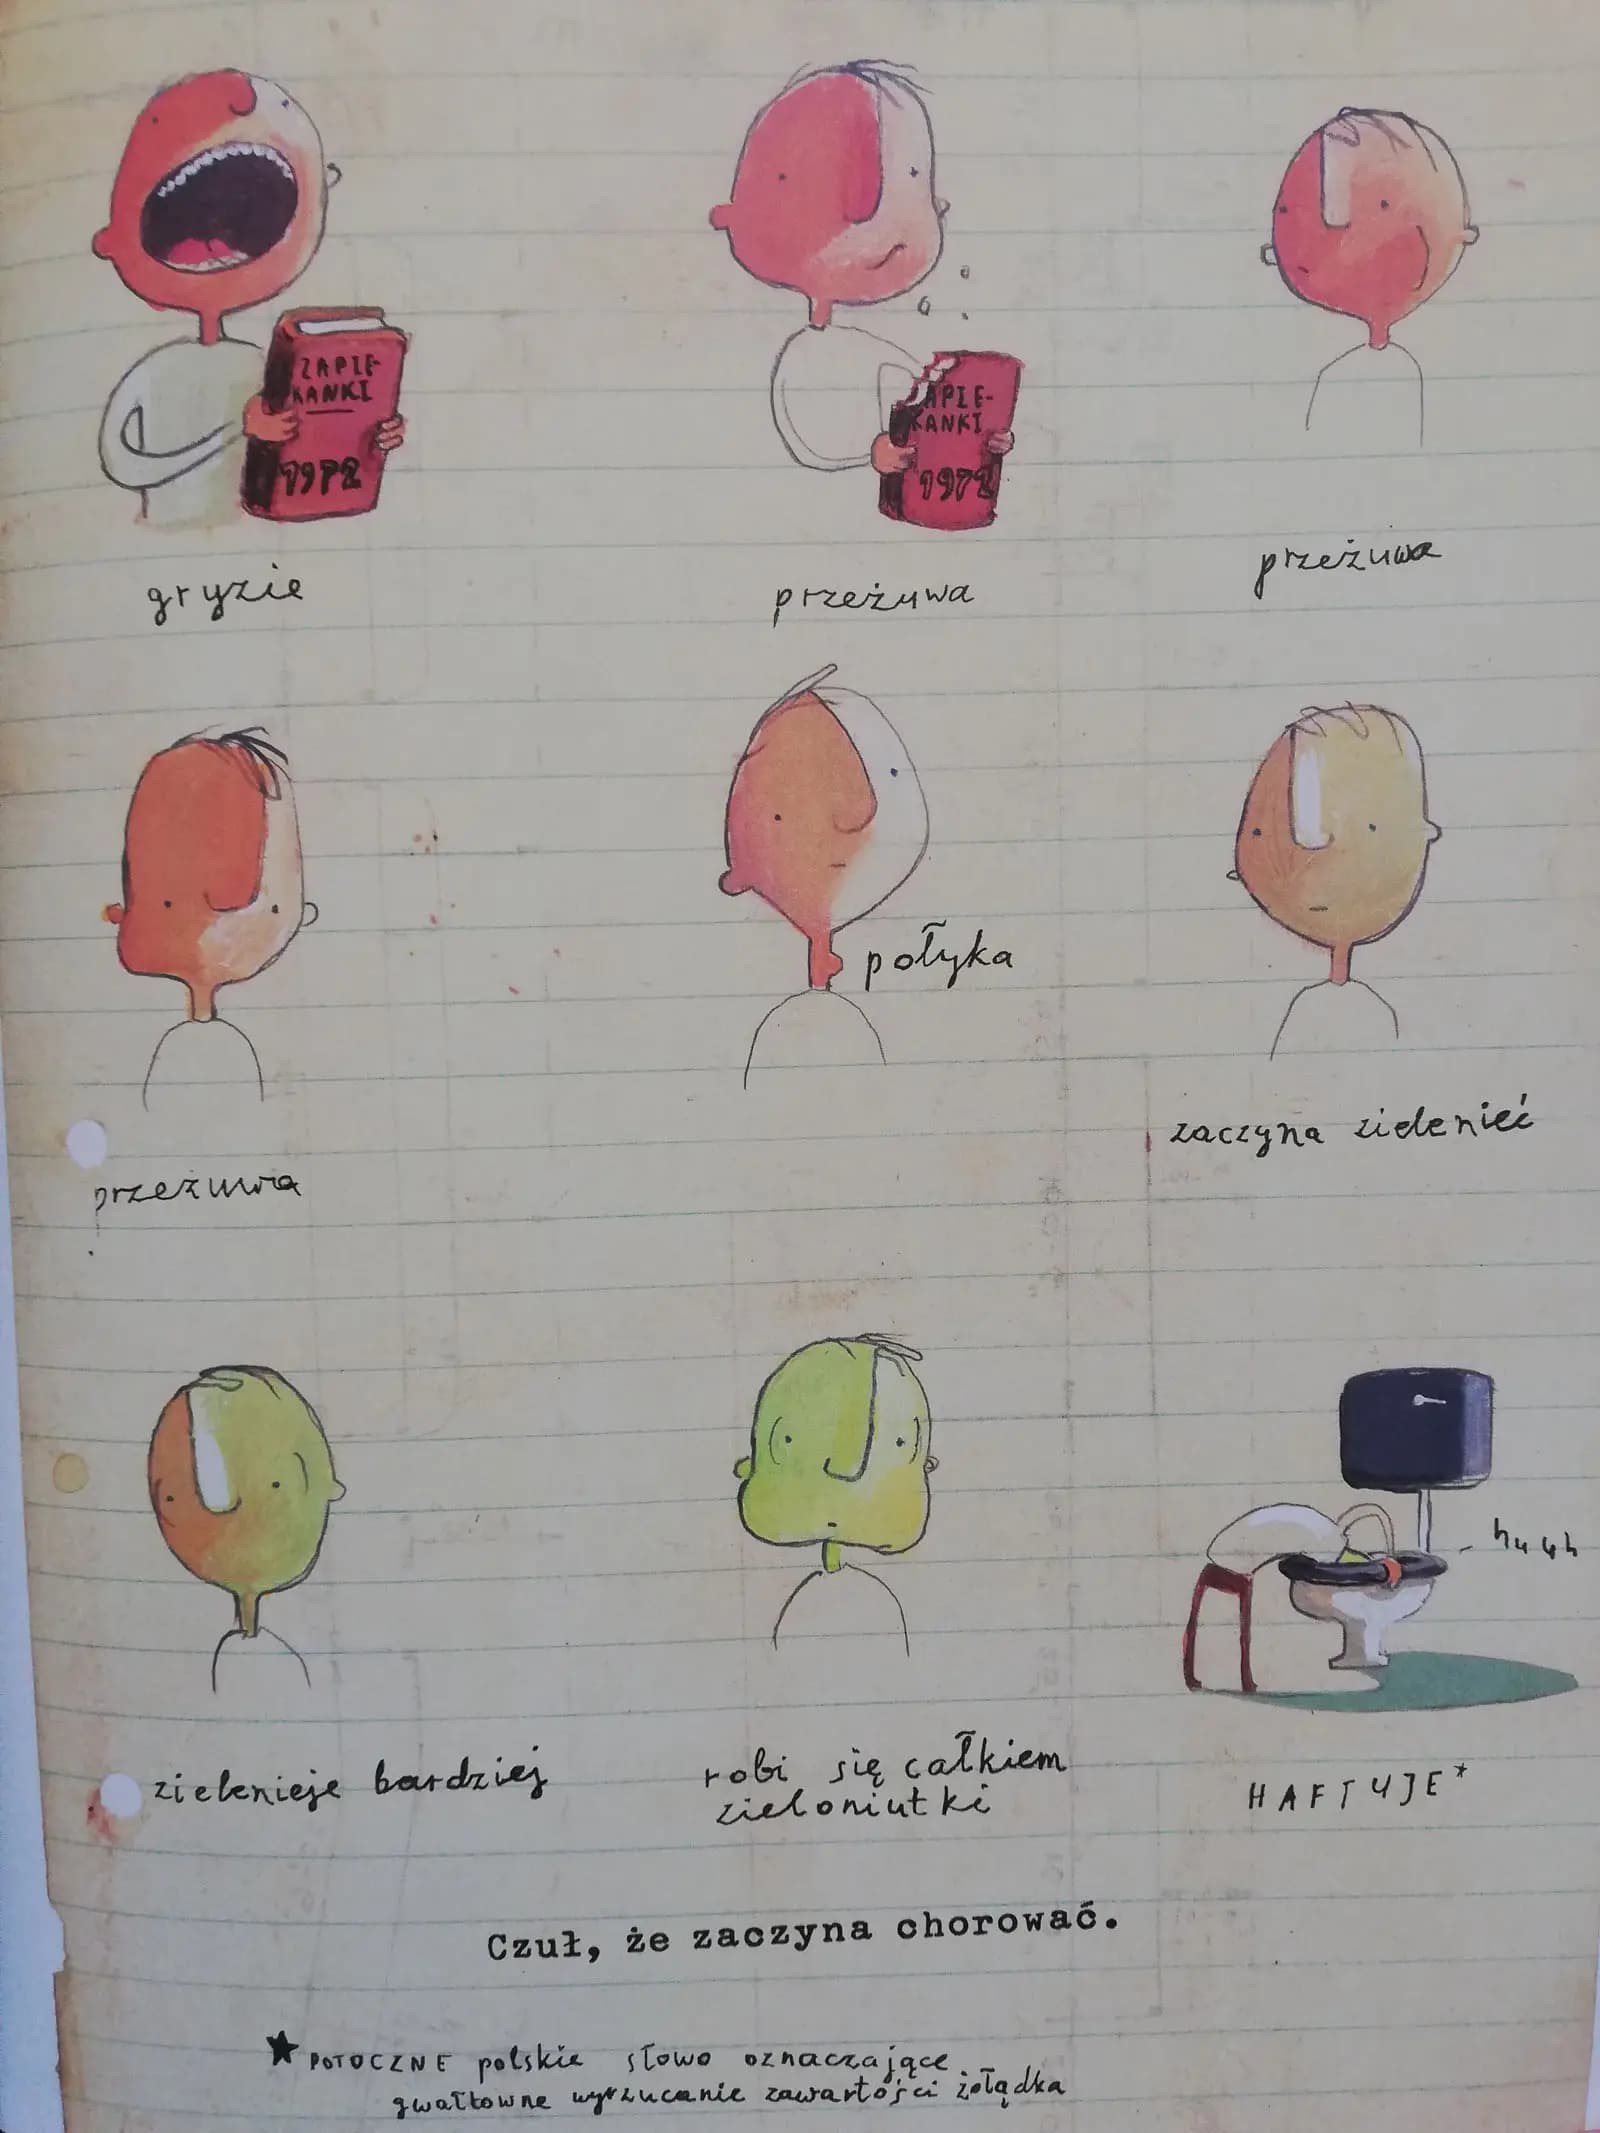 ZAPIE-
KANKI
1972
gryzie
APIE-
KANKI
1972
przeżuwa
przeżuwa
przeżuwa
połyka
zaczyna zielenieć
zielenieje bardziej
robi się całkiem
zieloniutki
huuh
HAFTUJE*
Czuł, że zaczyna chorować.
★ POTOCZNE polskie słowo oznaczające
gwałtowne wyrzucanie zawartości żołądka